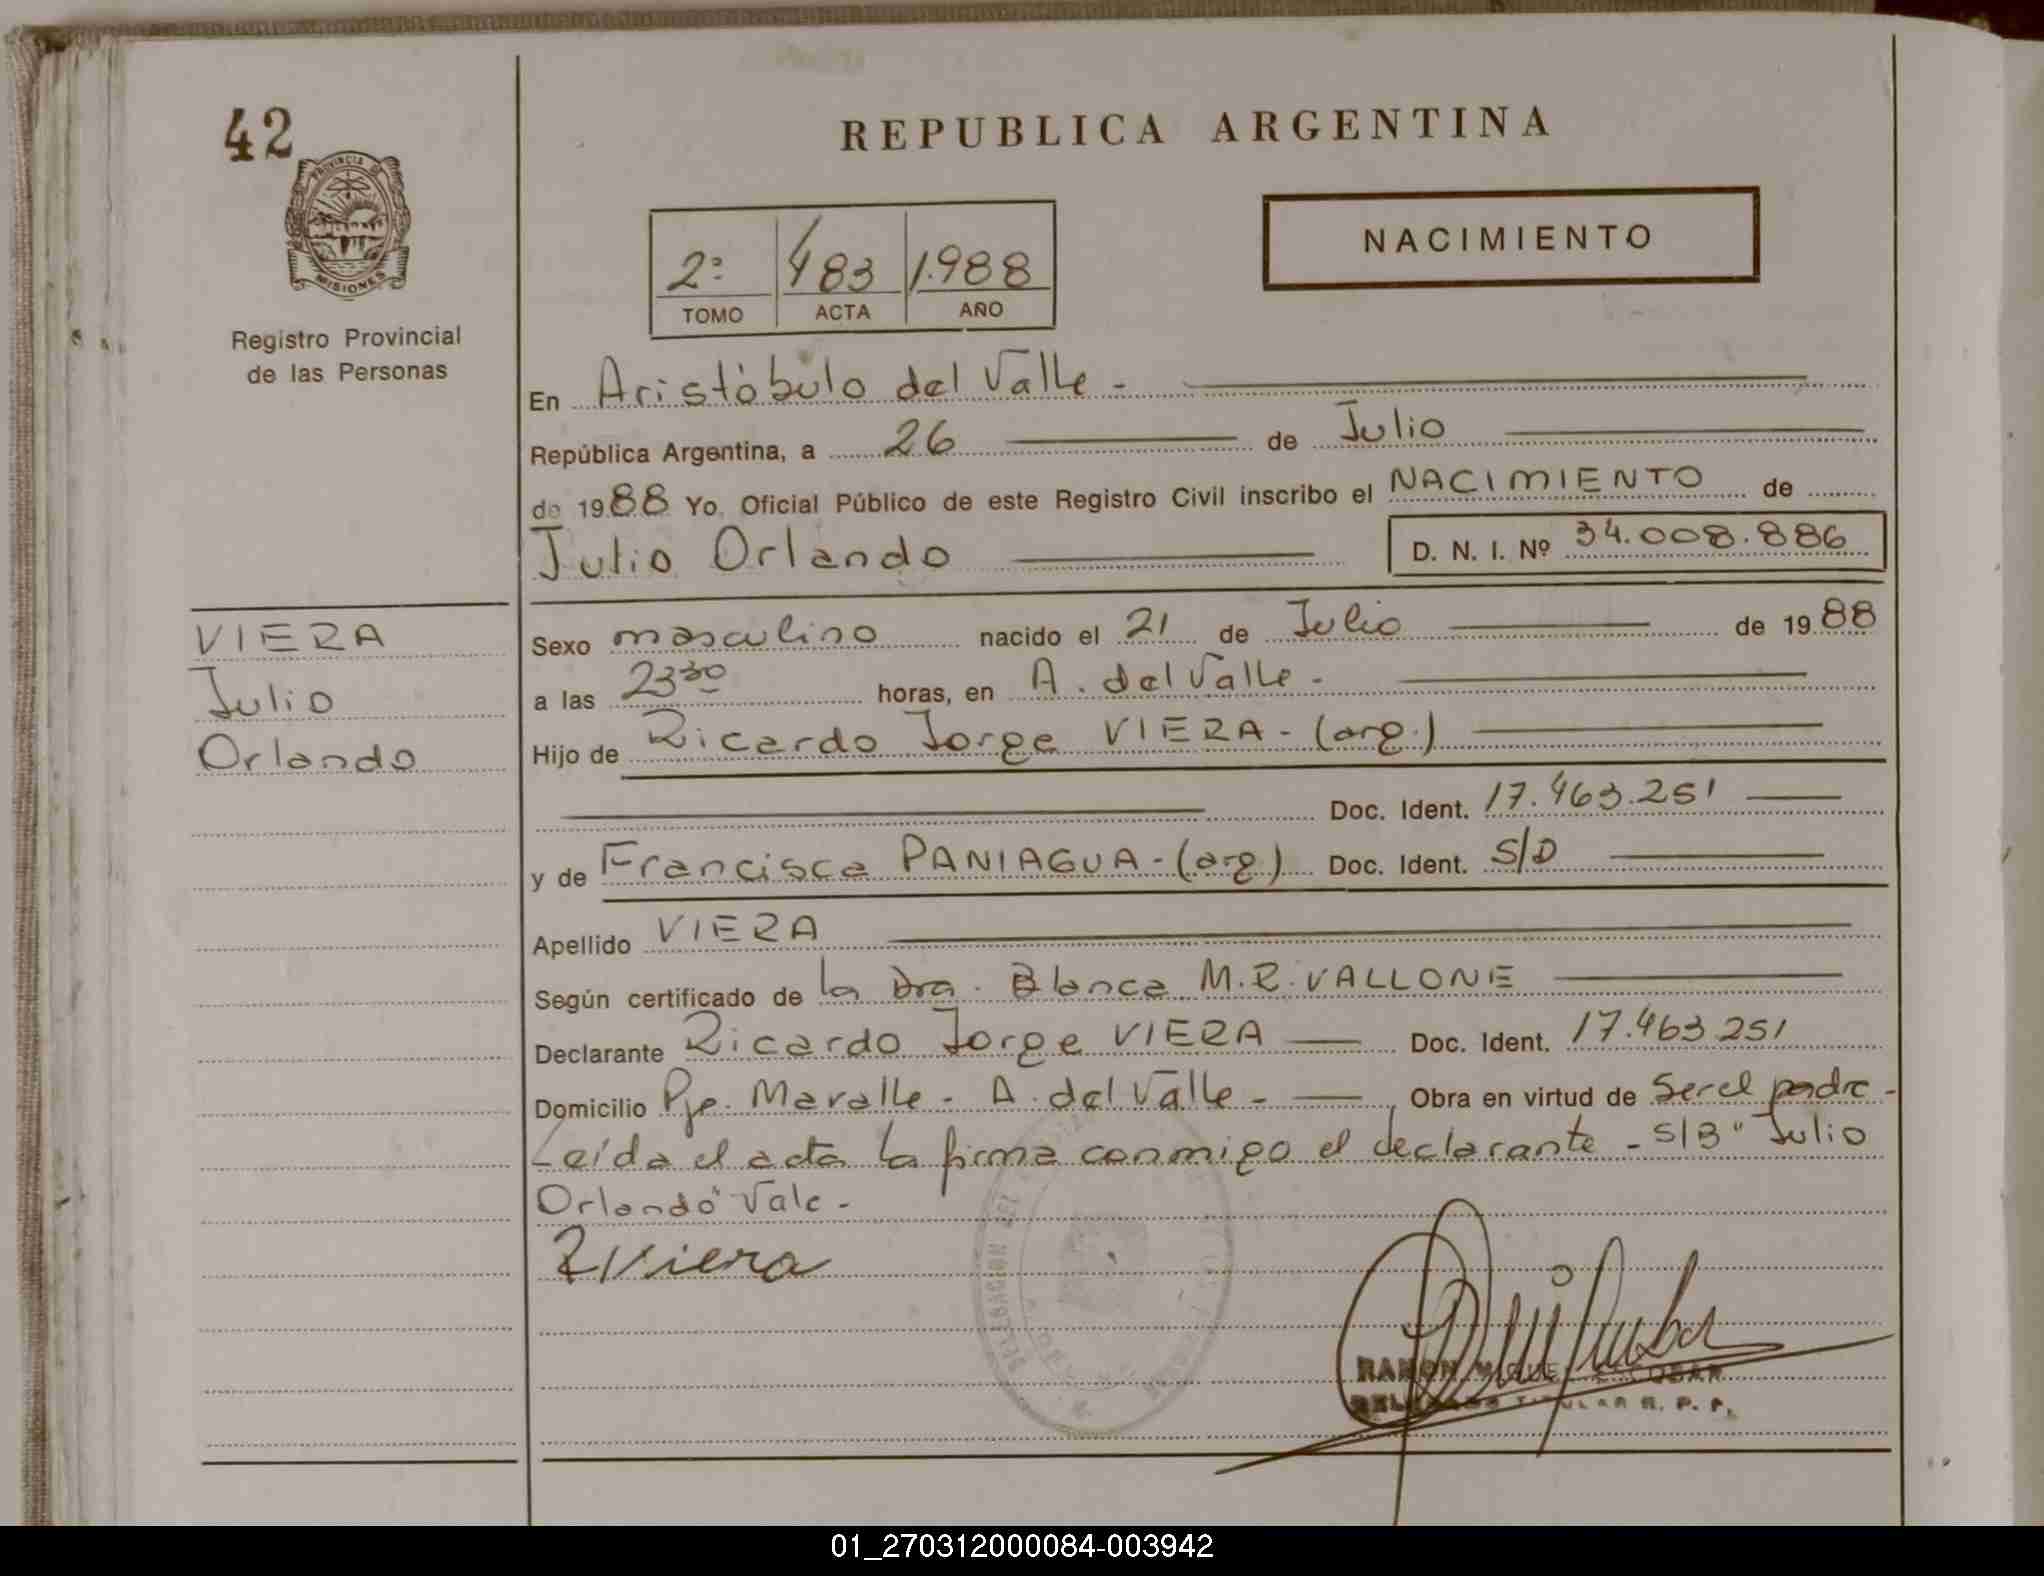 42
PROVINCIA DE
MISIONES
Registro Provincial
de las Personas
REPUBLICA ARGENTINA
NACIMIENTO
2º 483 1.988
TOMO ACTA AÑO
En Aristóbulo del Valle -
República Argentina, a 26 de Julio
de 1988 Yo, Oficial Público de este Registro Civil inscribo el NACIMIENTO de
Julio Orlando D. N. I. Nº 34.008.886
VIERA
Julio
Orlando
Sexo masculino nacido el 21 de Julio de 1988
a las 23³⁰ horas, en A. del Valle -
Hijo de Ricardo Jorge VIERA - (arg.)
Doc. Ident. 17.463.251
y de Francisca PANIAGUA - (arg.) Doc. Ident. S/D
Apellido VIERA
Según certificado de la Dra. Blanca M.R. VALLONE
Declarante Ricardo Jorge VIERA Doc. Ident. 17.463.251
Domicilio Pje. Mavalle - A. del Valle - Obra en virtud de Ser el padre -
Leída el acta la firma conmigo el declarante - S/B "Julio
Orlando" Vale -
RViera
DELEGACION DEL
RAMON MIGUEL ESCOBAR
DELEGADO TITULAR R. P. P.
01_270312000084-003942